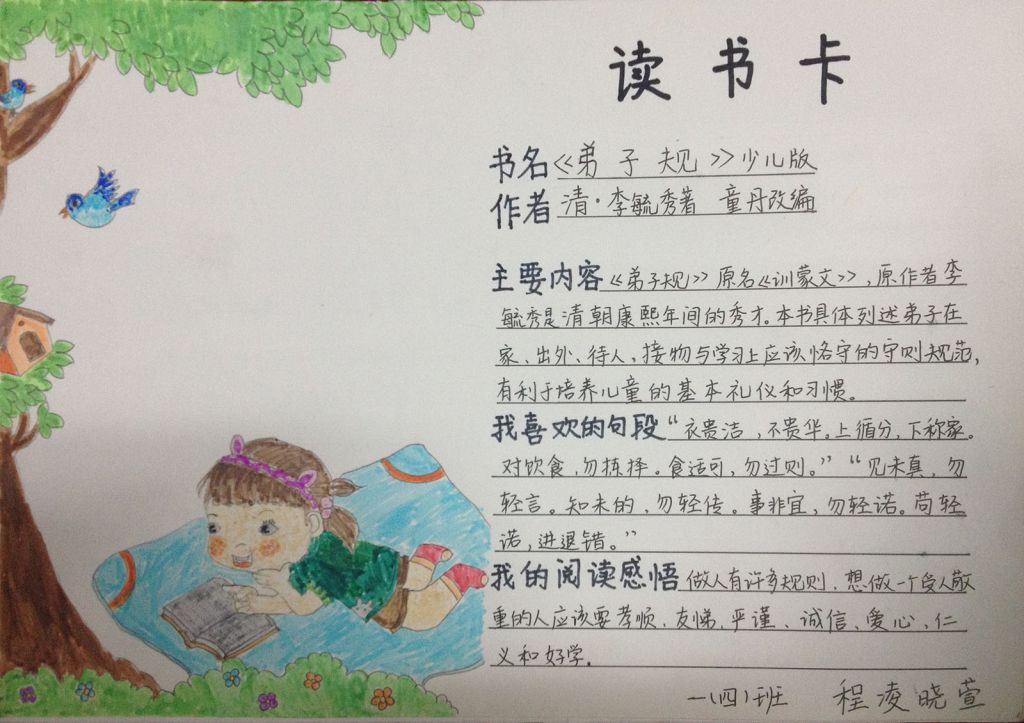 读书卡
书名《弟子规》少儿版
作者 清·李毓秀著 童丹改编
主要内容《弟子规》原名《训蒙文》,原作者李
毓秀是清朝康熙年间的秀才。本书具体列述弟子在
家、出外、待人,接物与学习上应该恪守的守则规范,
有利于培养儿童的基本礼仪和习惯。
我喜欢的句段“衣贵洁,不贵华。上循分,下称家。
对饮食,勿拣择。食适可,勿过则。”“见未真,勿
轻言。知未的,勿轻传。事非宜,勿轻诺。苟轻
诺,进退错。”
我的阅读感悟 做人有许多规则,想做一个受人敬
重的人应该要孝顺,友悌,严谨、诚信、爱心,仁
义和好学。
一(四)班 程凌晓萱